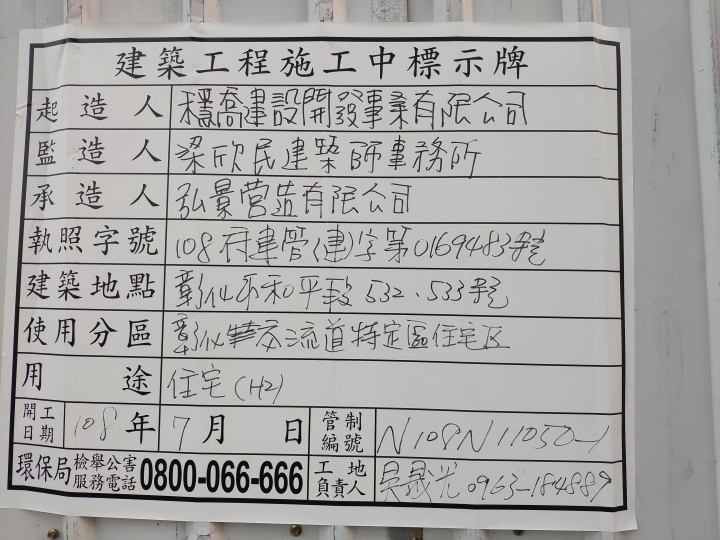 建築工程施工中標示牌
起造人 穩喬建設開發事業有限公司
監造人 梁欣民建築師事務所
承造人 弘景營造有限公司
執照字號 108府建管(建)字第0169483號
建築地點 彰化市和平段532、533號
使用分區 彰化交流道特定區住宅区
用途 住宅(H2)
開工日期 108年7月 日 管制編號 N108N11050-1
環保局 檢舉公害服務電話 0800-066-666 工地負責人 吳晟光 0963-184889